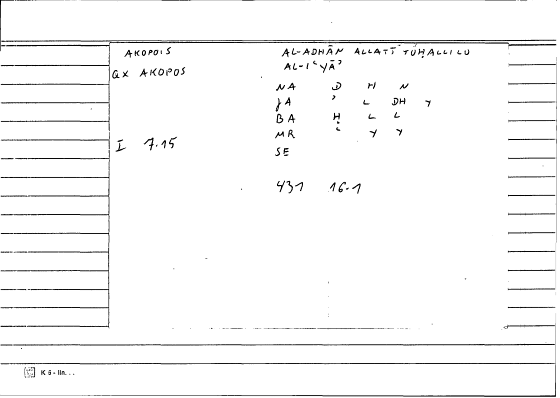 AKOPOIS
QX AKOPOS
I 7.15
AL-ADHĀN ALLATĪ TUḤALLILU
AL-IʿYĀʾ
NA D H N
JA ʾ L DH Y
BA Ḥ L L
MR ʿ Y Y
SE
431 16.1
K 6 - lin. . .